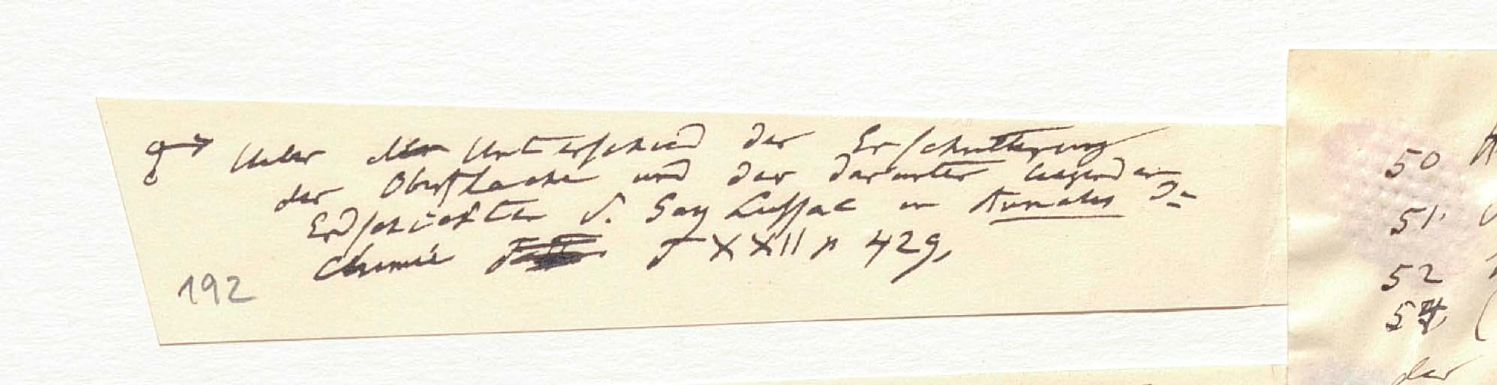 Ueber den Unterschied der Erschütterung
der Oberflaeche und der darunter liegenden
Erdschichten s. Gay Lussac in Annales de
Chimie T XXII p 429,
192
50
51
52
54
der